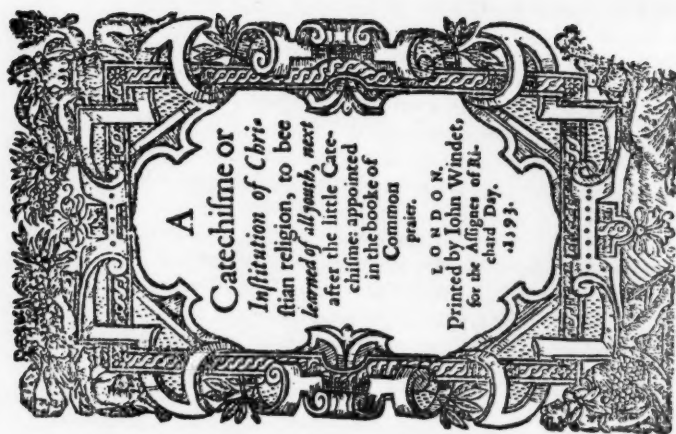 A
Catechiſme or
Inſtitution of Chri-
ſtian religion, to bee
learned of all youth, next
after the little Cate-
chiſme: appointed
in the booke of
Common
praier.
LONDON.
Printed by Iohn Windet,
for the Aſſignes of Ri-
chard Day.
.1593.